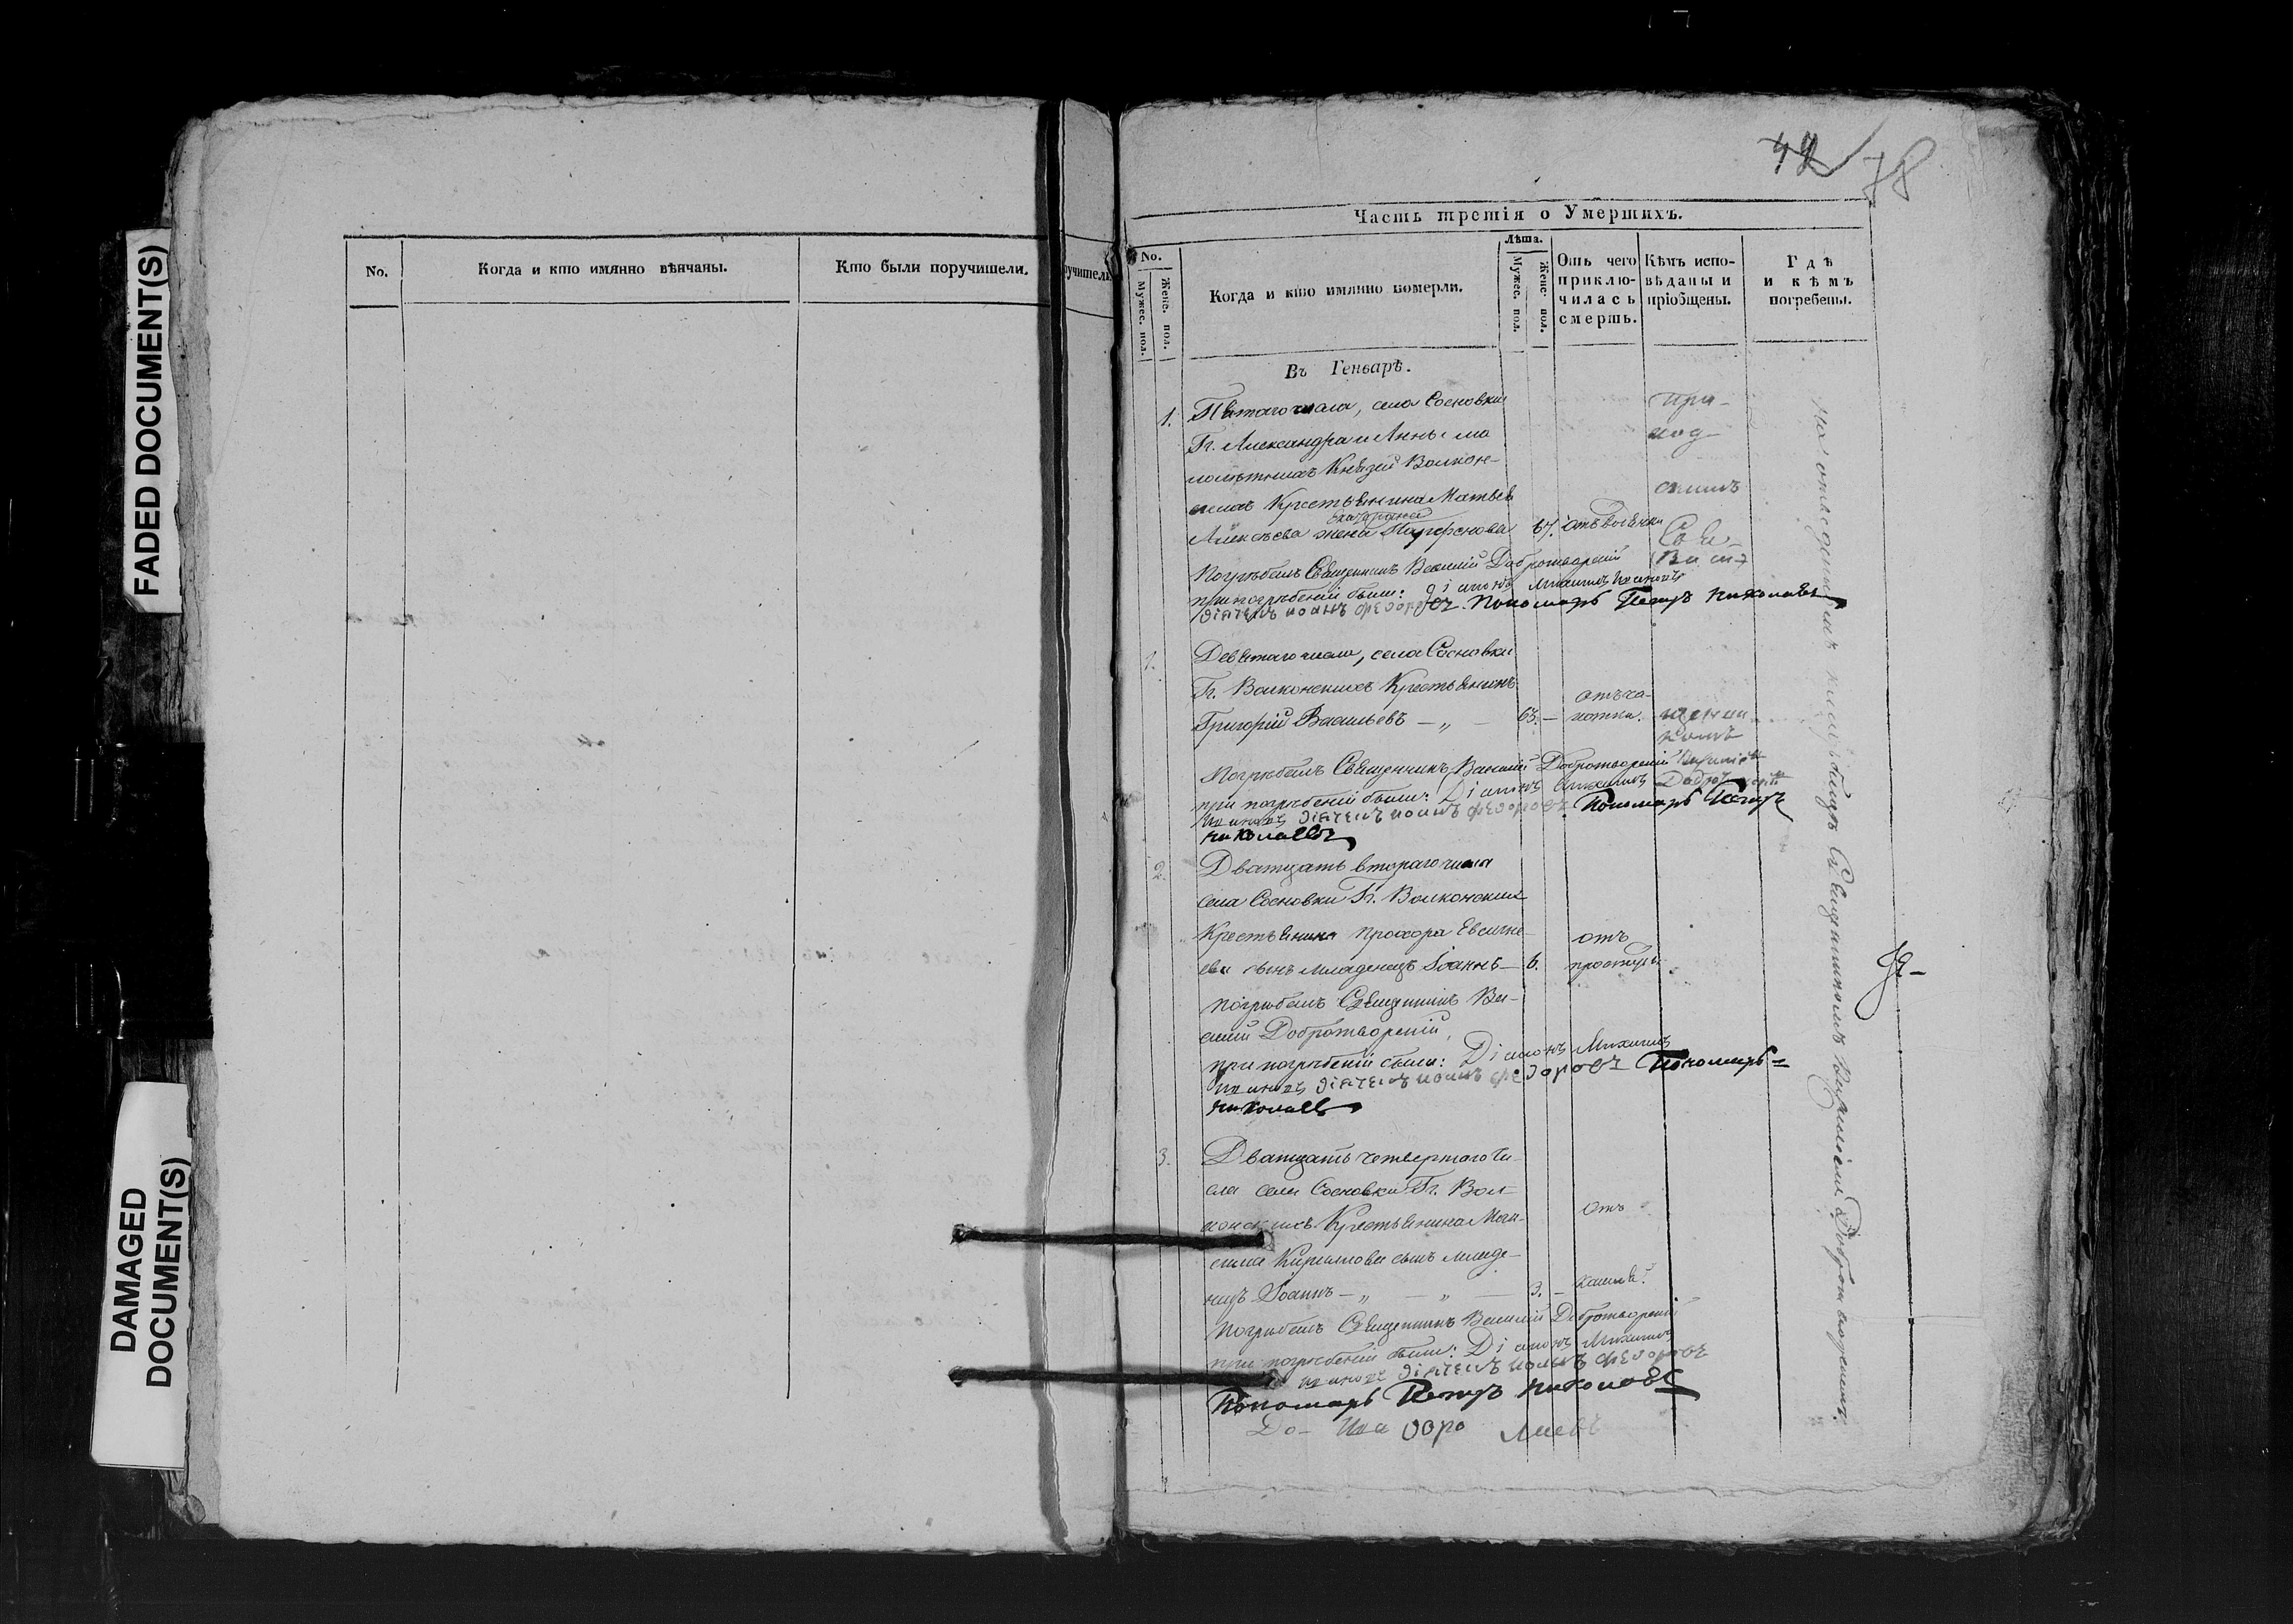 FADED DOCUMENT(S)
DAMAGED
DOCUMENT(S)
No.
Когда и кто имянно вѣнчаны.
Кто были поручители.
учители.
42 78
Часть третія о Умершихъ.
No.
Мужес. пол.
Женс. пол.
Когда и кто имянно померли.
Лѣта.
Мужес. пол.
Женс. пол.
Отъ чего
приклю-
чилась
смерть.
Кѣмъ испо-
вѣданы и
пріобщены.
Гдѣ
и кѣмъ
погребены.
Въ Генварѣ.
1. Пятаго числа, села Сосновки
Гг. Александра и Анны ма
лолѣтныхъ Князей Волкон-
скихъ Крестьянина Матвея
Алексѣева жена Парфенова 67. отъ
Погрѣбалъ Священникъ Василій Добротворскій
при погрѣбеніи были: Діаконъ Михаилъ Ивановъ
дьячекъ иоанъ федоровъ. Пономарь Петръ николаевъ
при-
ход
скимъ
Свя-
Васи-
1. Девятаго числа, села Сосновки
Гг. Волконскихъ Крестьянинъ
Григорій Васильевъ — „ — 65. —
отъ ча-
хотки.
щенни
комъ
Погрѣбалъ Священникъ Василій Добротворскій
при погрѣбеніи были: Діаконъ Михаилъ
Ивановъ дьячекъ иоанъ федоровъ. Пономарь Петръ
николаевъ
2. Дватцать втораго числа
села Сосновки Гг. Волконскихъ
Крестьянина Прохора Евсигне-
ева сынъ младенецъ Іоаннъ — 6.
отъ
простуды.
Погрѣбалъ Священникъ Ва-
силій Добротворскій,
при погрѣбеніи были: Діаконъ Михаилъ
Ивановъ дьячекъ иоанъ федоровъ Пономарь
николаевъ
3. Дватцать четвертаго чи-
сла села Сосновки Гг. Вол-
конскихъ Крестьянина Мак-
сима Кирилова сынъ младе-
нецъ Іоаннъ — „ — „ — 3. —
отъ
кашля.
Погрѣбалъ Священникъ Василій Добротворскій
при погрѣбеніи были: Діаконъ Михаилъ
Ивановъ дьячекъ иоанъ федоровъ
Пономарь Петръ николаевъ
До- Ива доро лаевъ
На отведенномъ кладбищѣ Священникомъ Василіемъ Добротворскимъ.